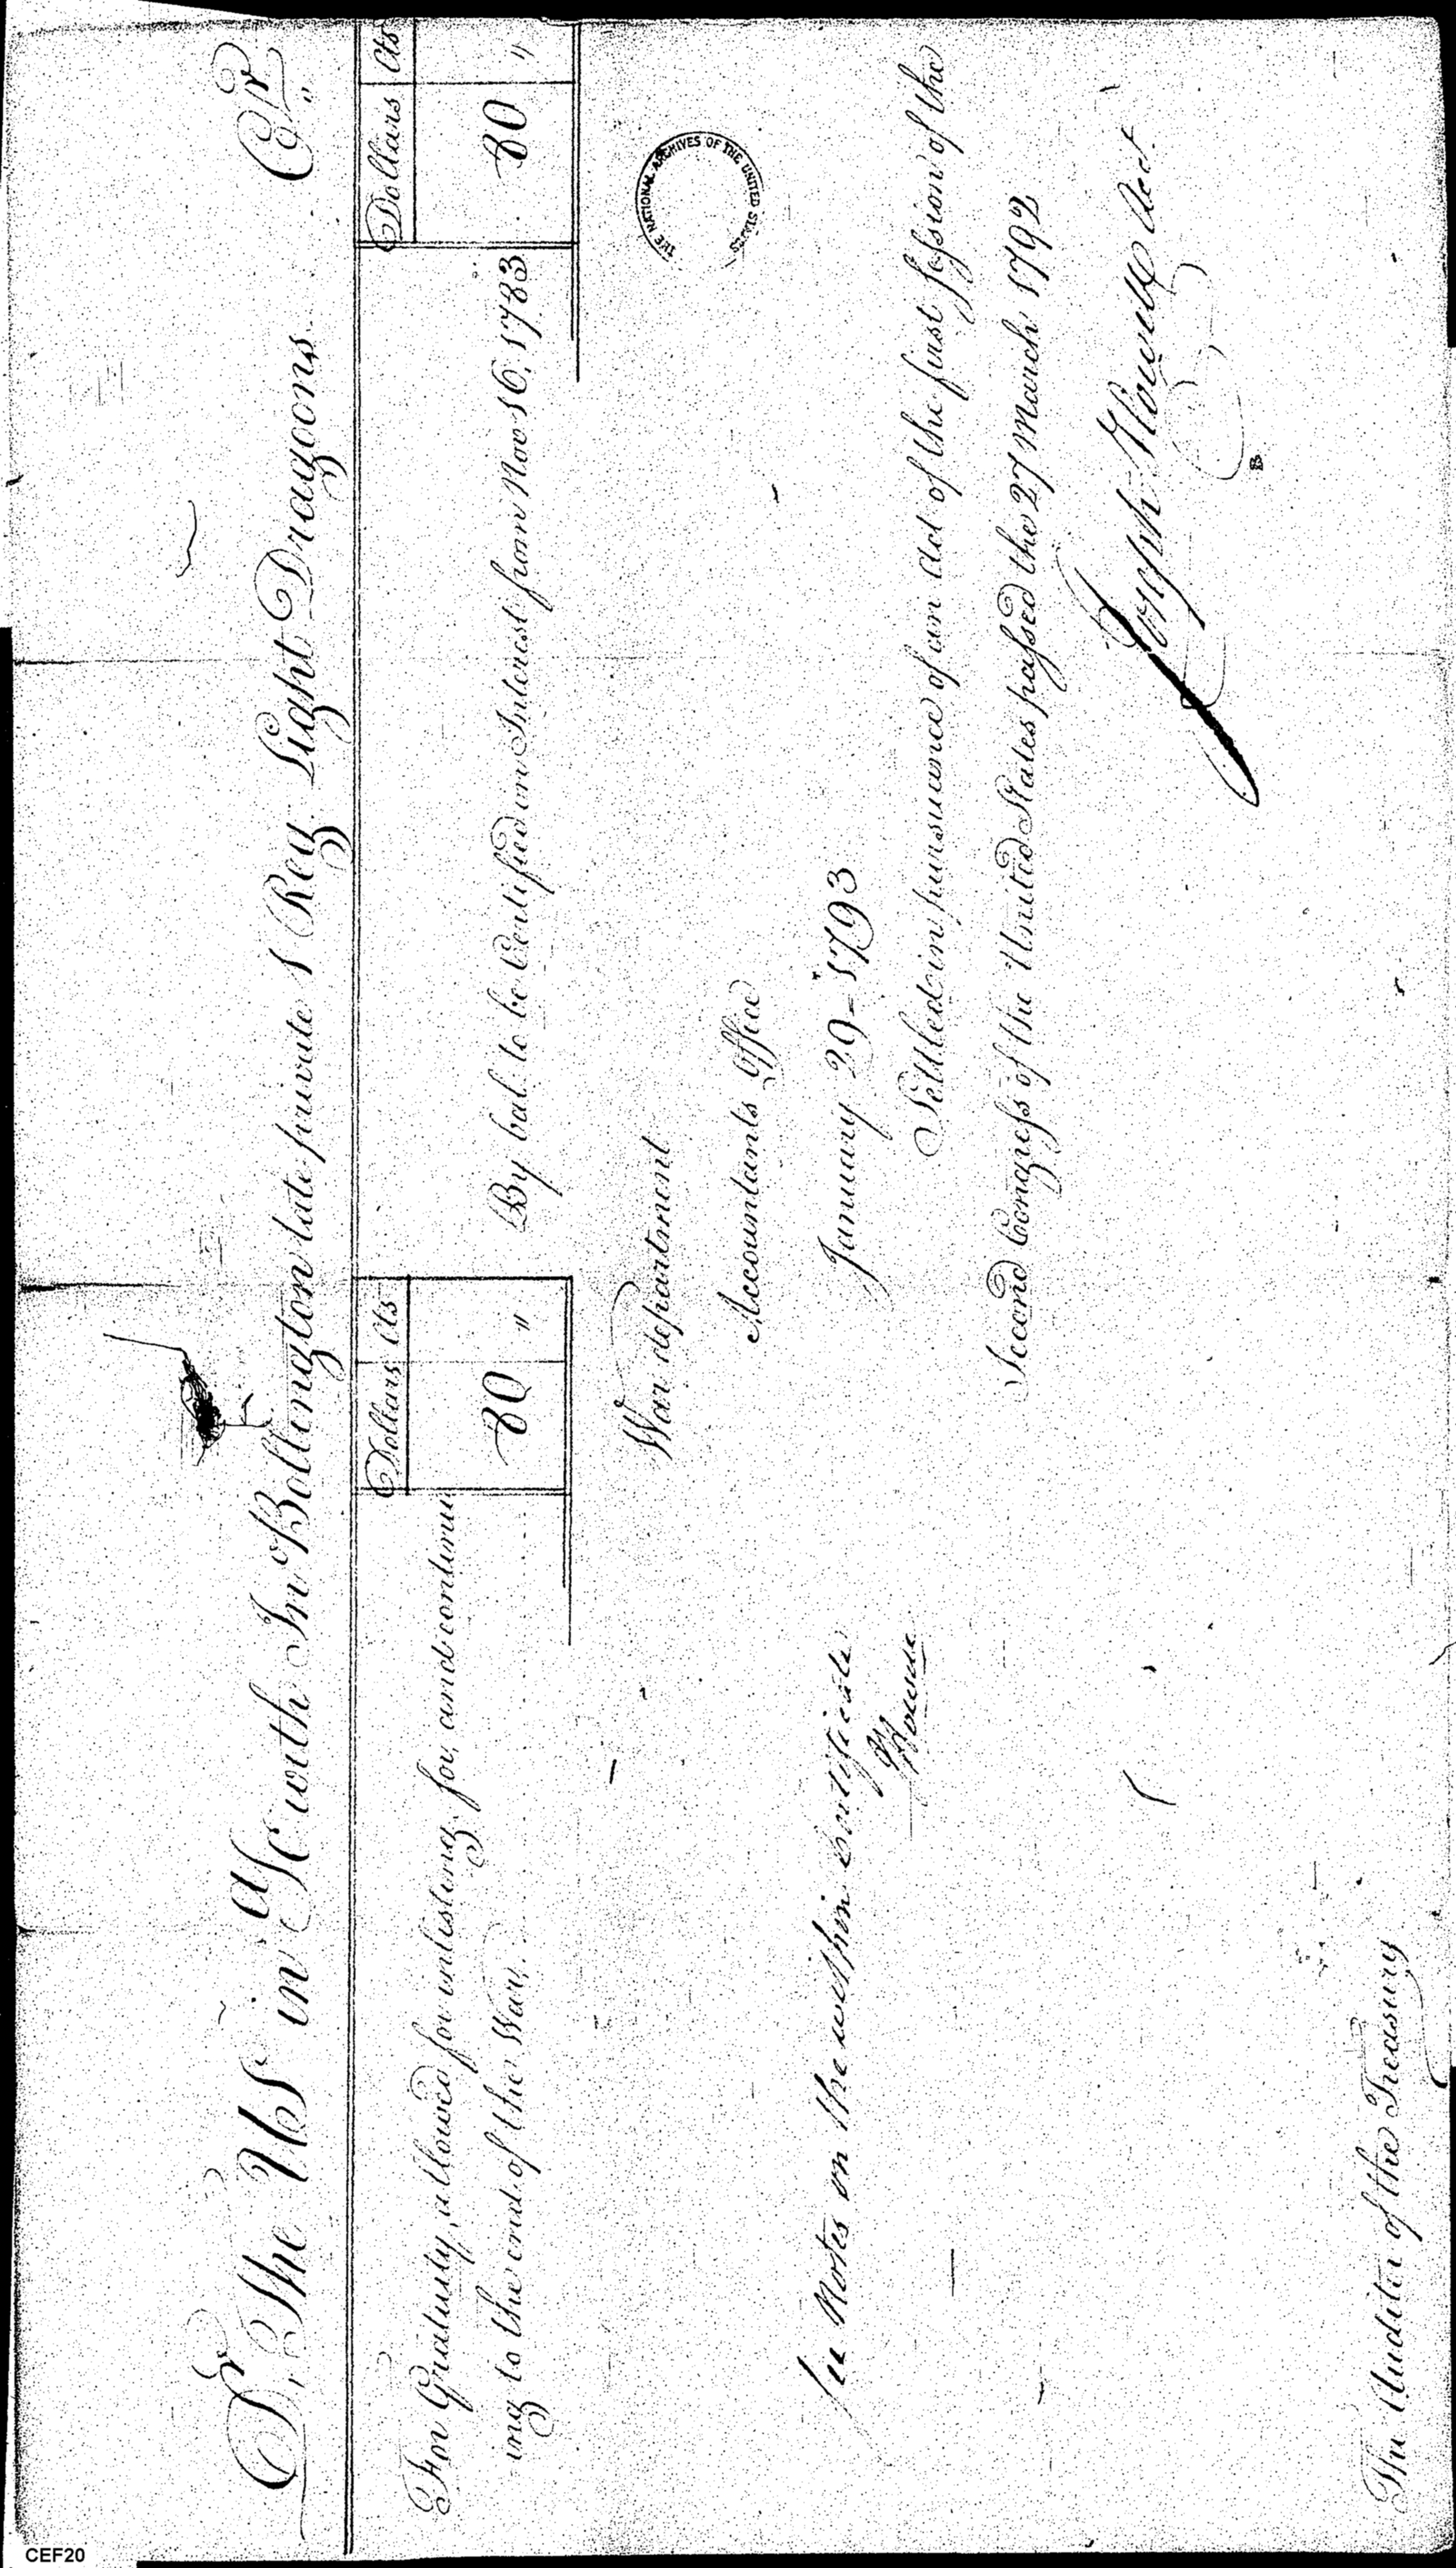 Dr. The US in a/c with Jno Bollington late private 1 Reg. Light Dragoons Cr.
Dollars Cts
Dollars Cts
For Gratuity, allowed for inlisting for, and continu
ing to the end of the War. 80 "
By bal. to be Certified on Interest from Nov 16, 1783 80 "
THE NATIONAL ARCHIVES OF THE UNITED STATES
War department
Accountants Office
January 29 - 1793
See Notes on the within Certificate
Howell
Settled in pursuance of an act of the first session of the
Second Congress of the United States passed the 27 March 1792
Joseph Howell Act.
The Auditor of the Treasury
CEF20